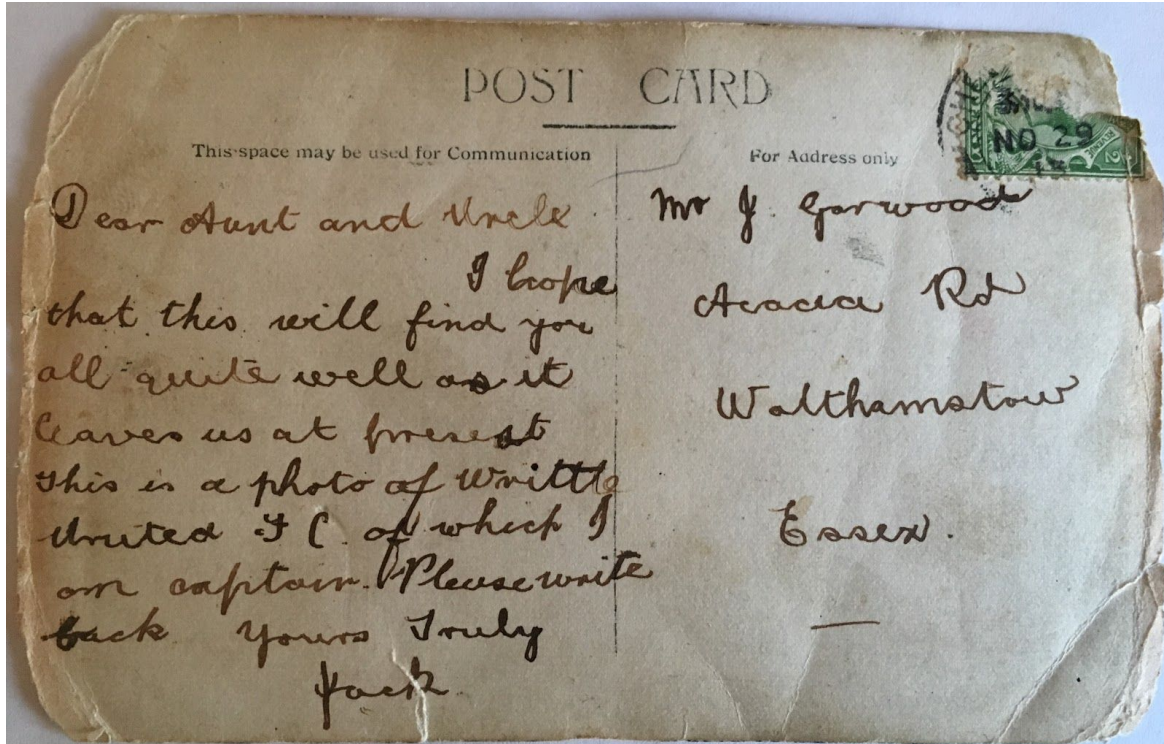 POST CARD
This space may be used for Communication
For Address only
NO 29
Dear Aunt and Uncle
I hope
that this will find you
all quite well as it
leaves us at present
This is a photo of Writtle
United F C. of which I
am captain. Please write
back Yours Truly
Jack
Mr J. Garwood
Acacia Rd
Walthamstow
Essex.